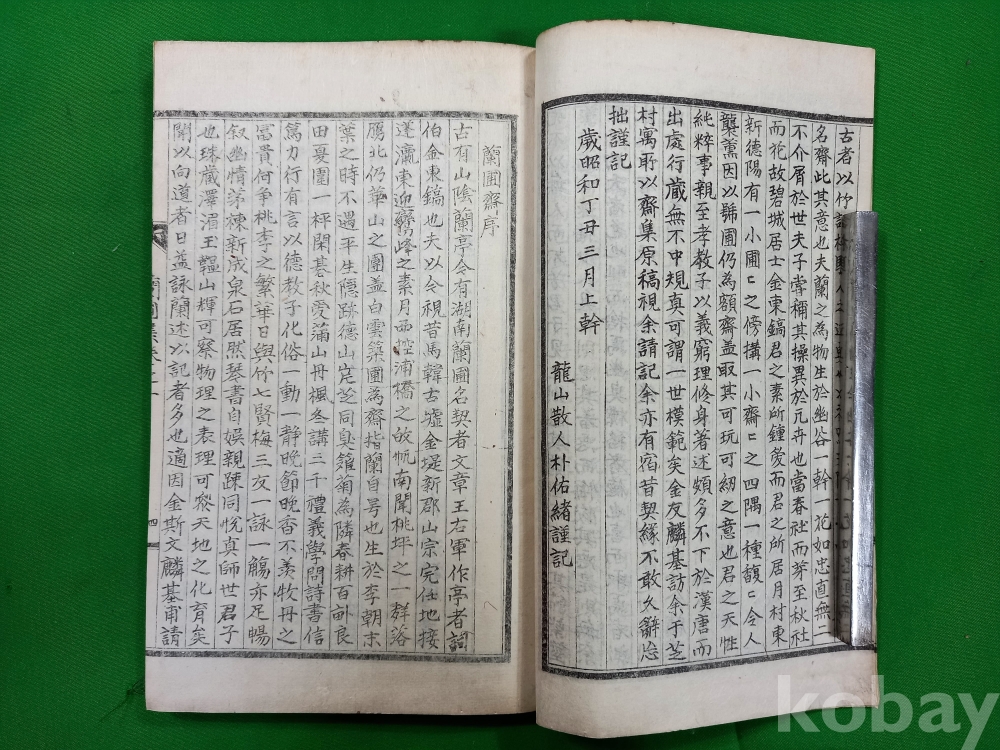 古者以竹
名齋此其意也夫蘭之為物生於幽谷一幹一花如忠直無二
不介屑於世夫子嘗稱其操異於凡卉也當春社而芽至秋社
而花故碧城居士金東鎬君之素所鍾愛而君之所居月村東
新德陽有一小圃〻之傍搆一小齋〻之四隅一種馥〻令人
襲薰因以號圃仍為額齋盖取其可玩可紉之意也君之天性
純粹事親至孝教子以義窮理修身著述頗多不下於漢唐而
出處行藏無不中規真可謂一世模範矣金友麟基訪余于芝
村寓所以齋集原稿視余請記余亦有宿昔契緣不敢久辭忘
拙謹記
歲昭和丁丑三月上幹
龍山散人朴佑緖謹記
蘭圃齋序
古有山陰蘭亭今有湖南蘭圃名契者文章王右軍作亭者詞
伯金東鎬也夫以今視昔馬韓古墟金堤新郡山宗完任地接
蓬瀛東迎鸞峰之素月西控浦橋之帆南聞桃坪之一群落
鴈北仍華山之團盖白雲築圃為齋指蘭自号也生於李朝末
葉之時不遇平生隱跡德山芝同臭籬菊為隣春耕百畝良
田憂圍一枰閑碁秋愛蒲山丹楓冬講三千禮義學問詩書信
篤力行有言以德教子化俗一動一靜晩節晩香不羨牧丹之
富貴何爭桃李之繁華日與竹七賢梅三友一詠一觴亦足暢
叙幽情茅棟新成泉石居然琴書自娛親踈同悅真師世君子
也珠藏澤湄玉韞山輝可察物理之表理可叅天地之化育矣
闌以向道者日益詠蘭述以記者多也適因金斯文麟基甫請
四